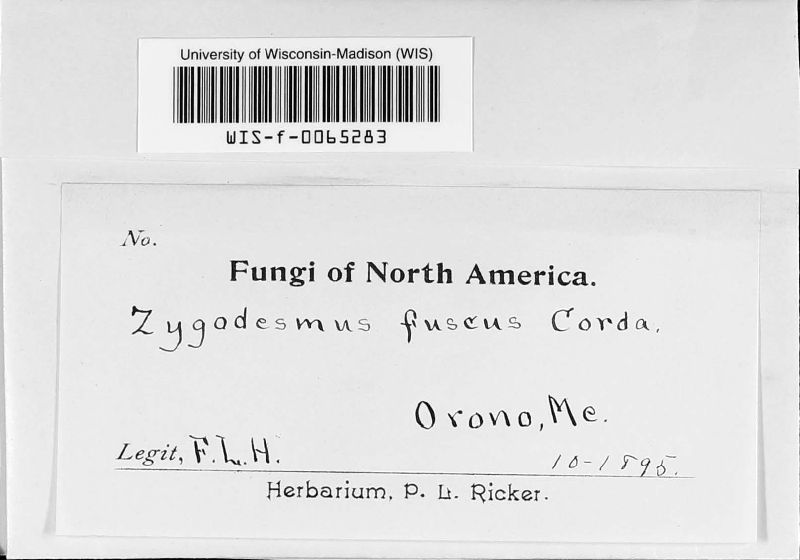 University of Wisconsin-Madison (WIS)
WIS-f-0065283
No.
Fungi of North America.
Zygodesmus fuscus Corda.
Orono, Me.
Legit, F. L. H.
10-1895.
Herbarium, P. L. Ricker.